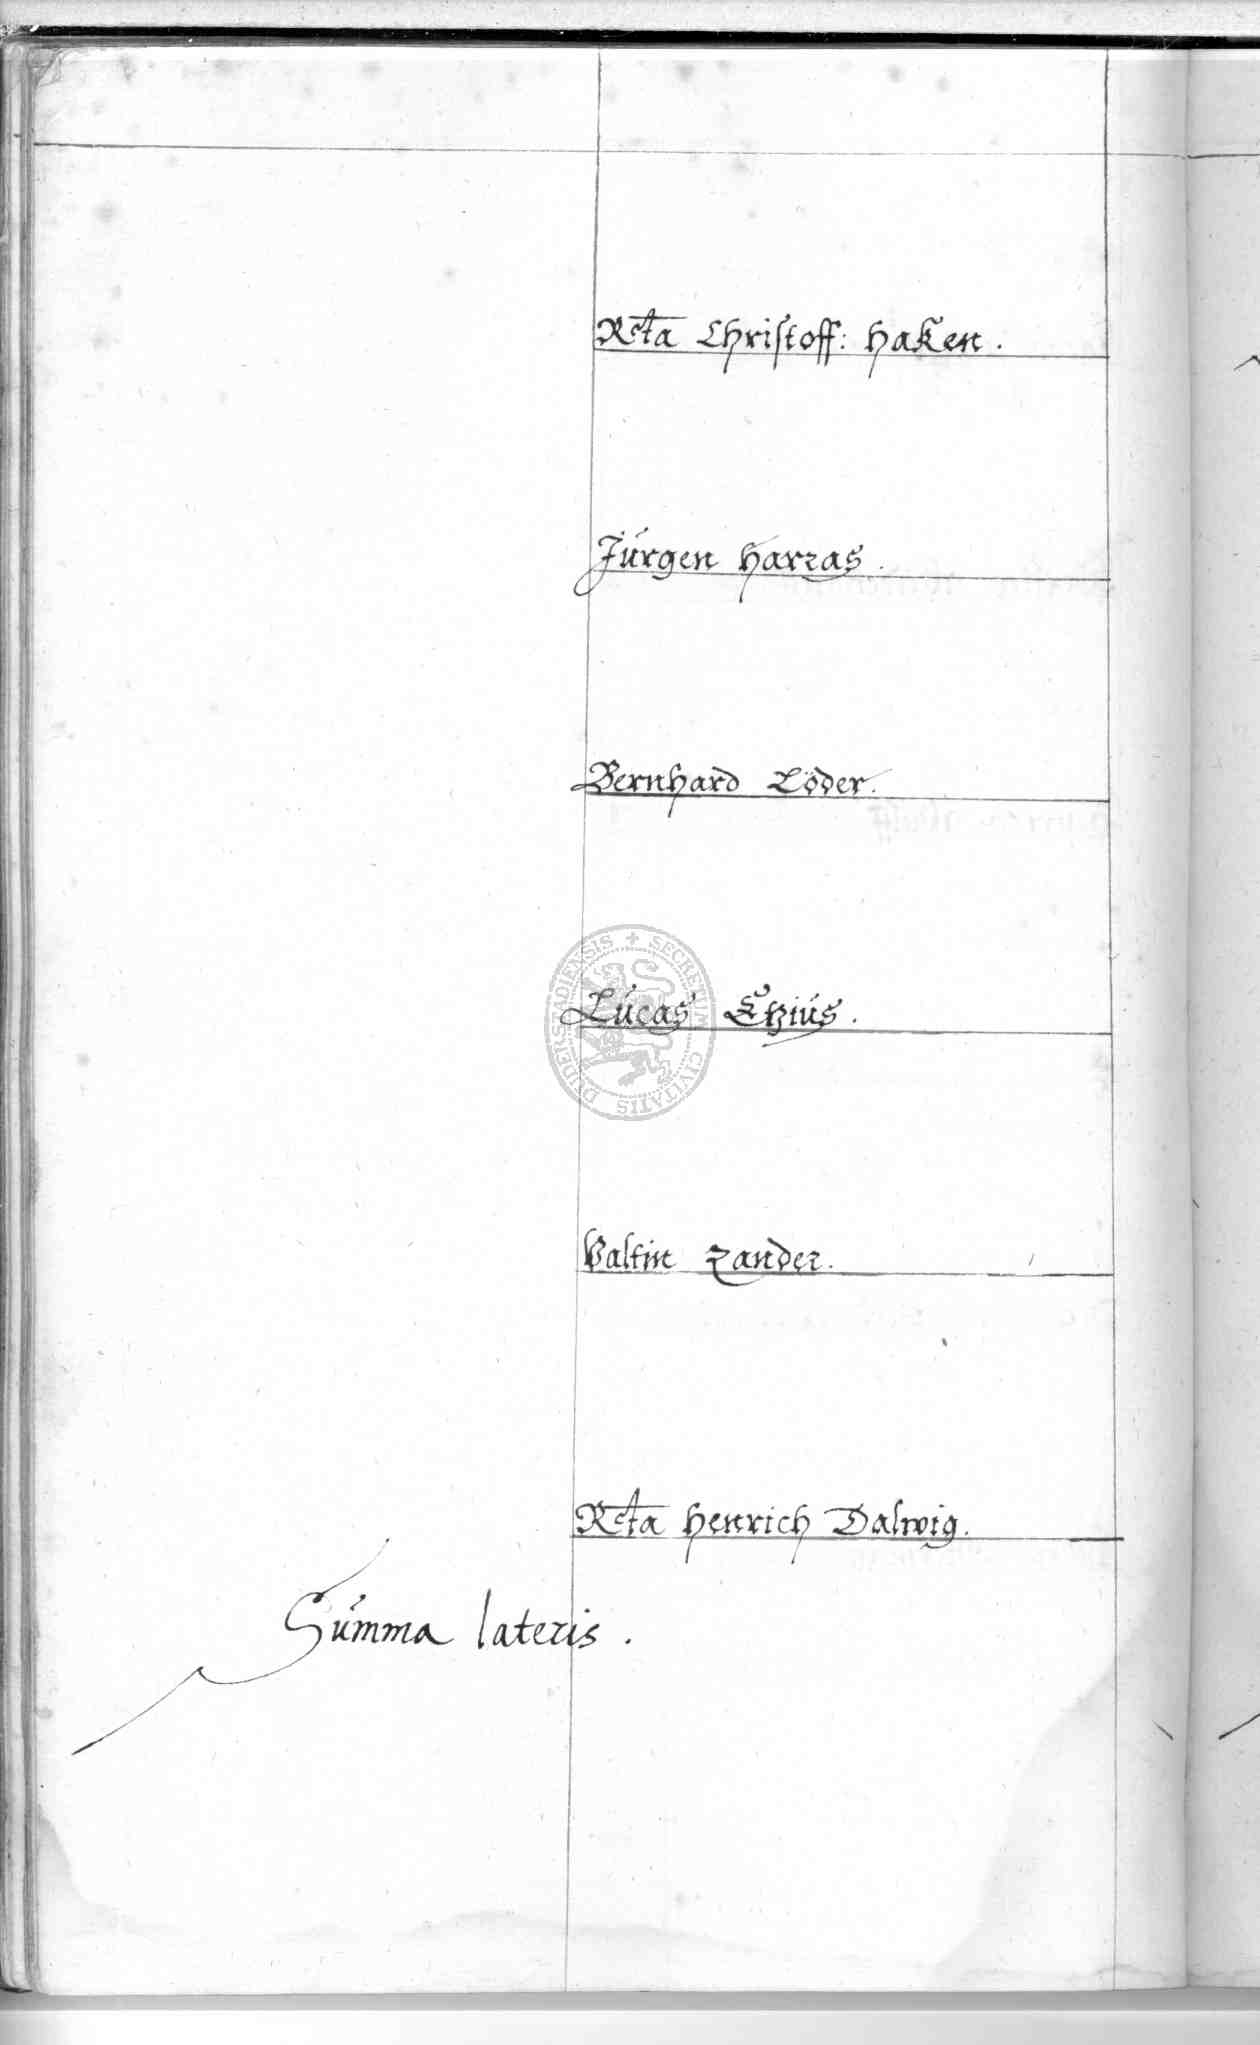 Rcta Christoff: Haken.
Jürgen Harras.
Bernhard Löder.
Lucas Etzius.
Valtin Zander.
Rcta Henrich Dalwig.
Summa lateris.
SECRETUM CIVITATIS DUDERSTADIENSIS